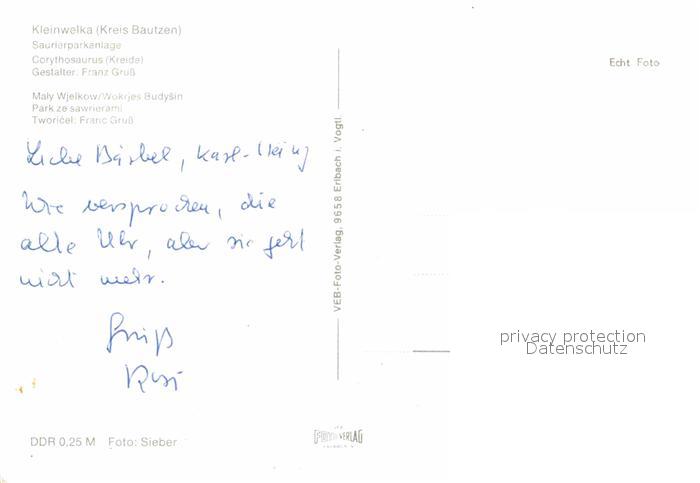 Kleinwelka (Kreis Bautzen)
Saurierparkanlage
Corythosaurus (Kreide)
Gestalter: Franz Gruß
Mały Wjelkow/Wokrjes Budyšin
Park ze sawrierami
Tworićel: Franc Gruß
Echt Foto
Liebe Bärbel, Karl-Heinz
Wie versprochen, die
alte Uhr, aber sie geht
nicht mehr.
Gruß
Rosi
VEB-Foto-Verlag, 9658 Erlbach i. Vogtl.
privacy protection
Datenschutz
DDR 0,25 M Foto: Sieber
FOTO-VERLAG